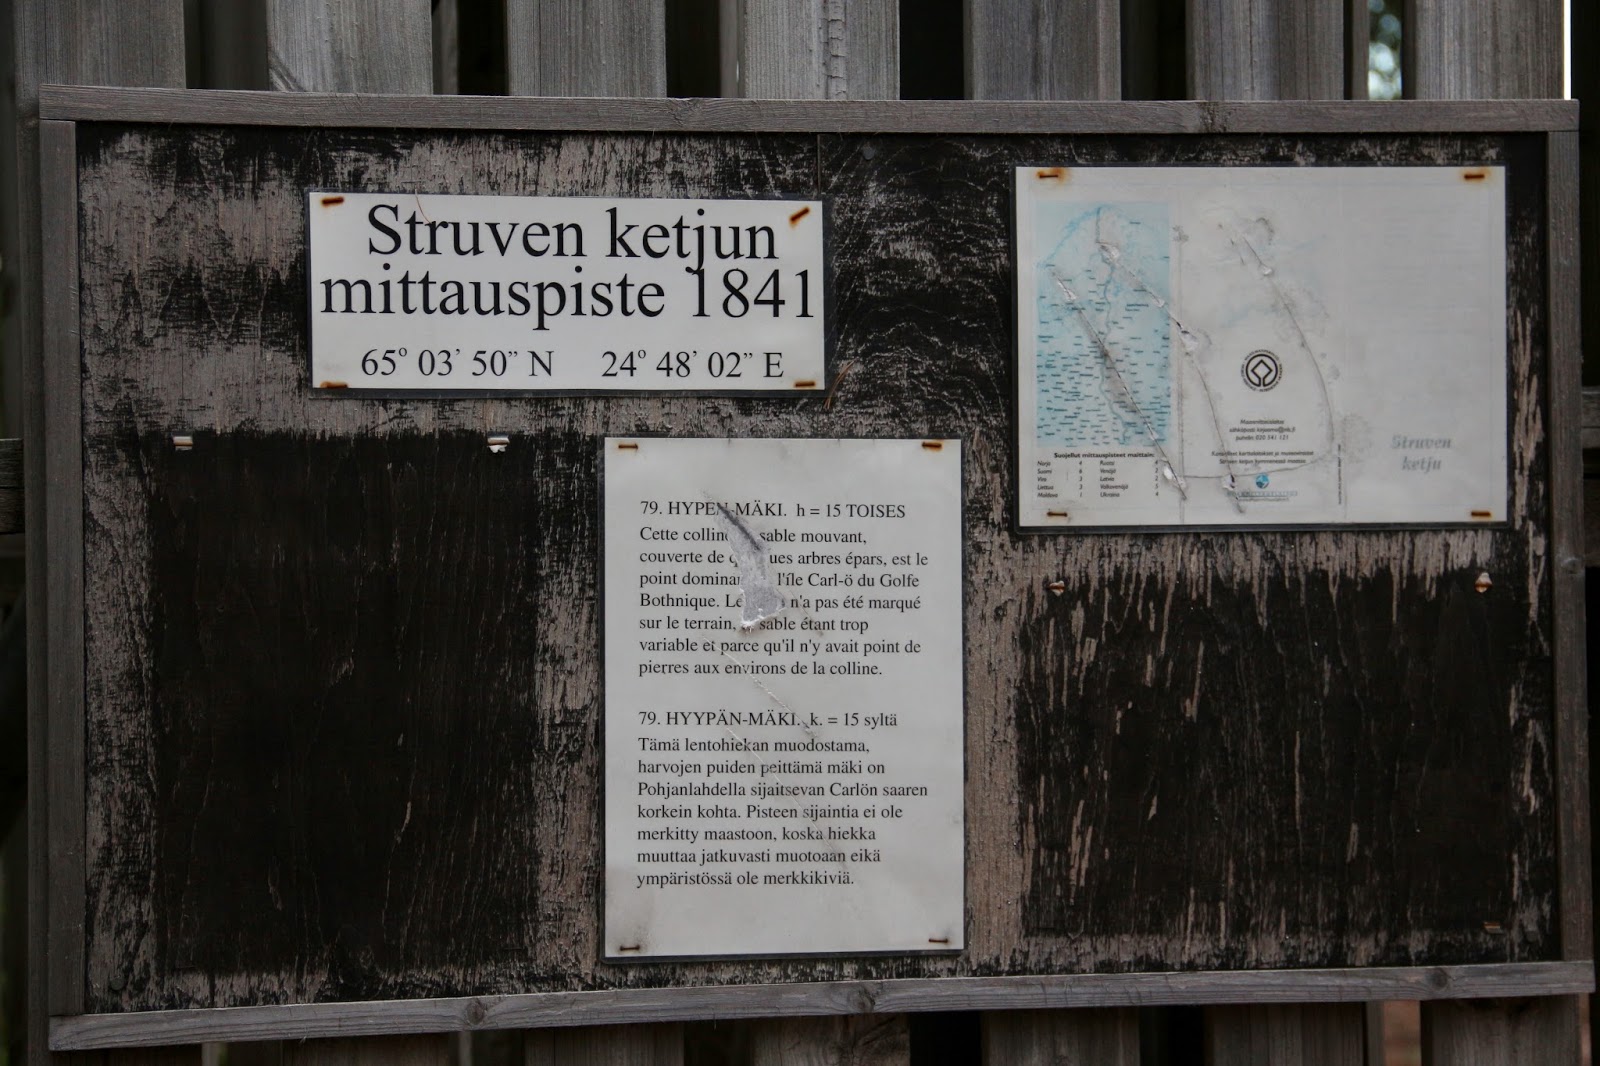 Struven ketjun
mittauspiste 1841
65° 03' 50" N 24° 48' 02" E
79. HYPEN-MÄKI. h = 15 TOISES
Cette colline sable mouvant,
couverte de arbres épars, est le
point l'île Carl-ö du Golfe
Bothnique. n'a pas été marqué
sur le terrain, sable étant trop
variable et parce qu'il n'y avait point de
pierres aux environs de la colline.
79. HYYPÄN-MÄKI. k. = 15 syltä
Tämä lentohiekan muodostama,
harvojen puiden peittämä mäki on
Pohjanlahdella sijaitsevan Carlön saaren
korkein kohta. Pisteen sijaintia ei ole
merkitty maastoon, koska hiekka
muuttaa jatkuvasti muotoaan eikä
ympäristössä ole merkkikiviä.
Suojellut mittauspisteet maittain:
Norja 4 Ruotsi
Suomi 6 Venäjä
Viro 3 Latvia
Liettua 3 Valkovenäjä
Moldova 1 Ukraina 4
Maanmittauslaitos
Struven
ketju